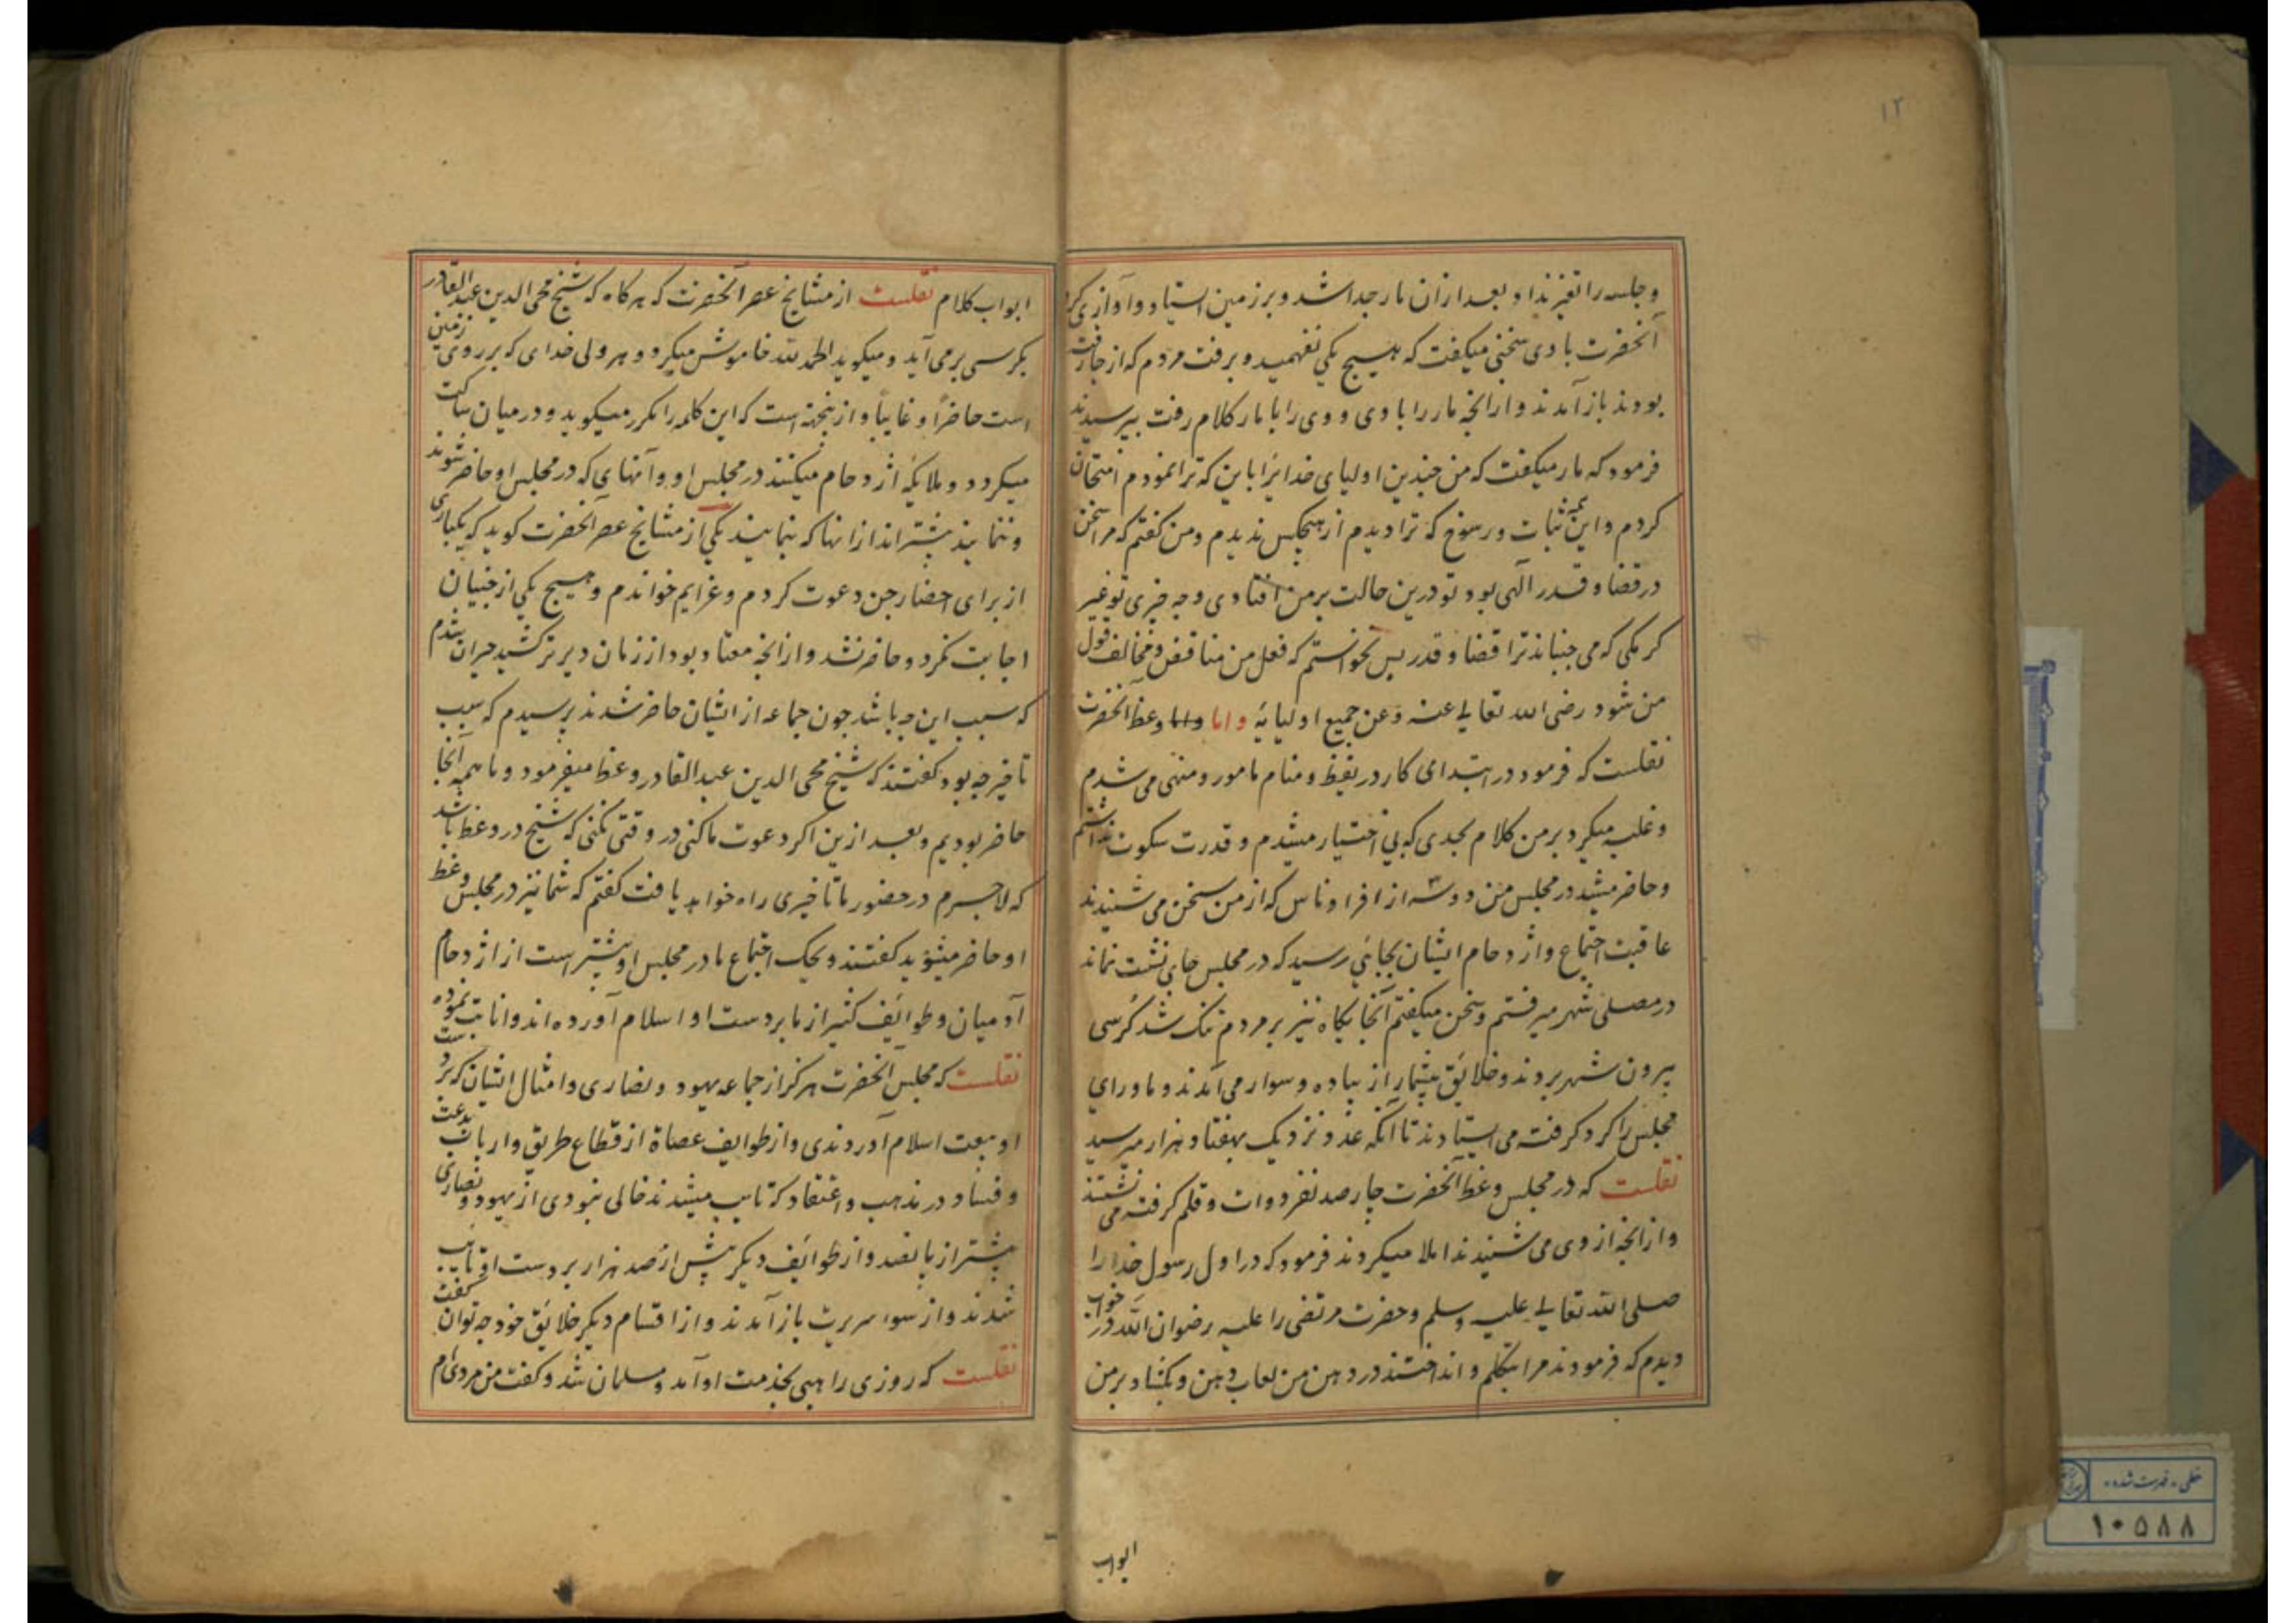 ۱۲
و جلسه را تغیر نداد و بعد ازان مار جدا شد و بر زمین استاد و آوازی کرد
آنحضرت با وی سخنی میکفت که هیچ یکی نفهمید و برفت مردم که از جا رفته
بودند باز آمدند و ازانچه مار را با وی و وی را با مار کلام رفت بپرسیدند
فرمود که مار میکفت که من چندین اولیای خدایرا باین که ترا نمودم امتحان
کردم و این همه ثبات و رسوخ که ترا دیدم از هیچکس ندیدم و من کفتم که مرا سخن
در قضا و قدر آلهی بود تو درین حالت بر من افتادی و چه چیزی تو غیر
کرمکی که می جنباند ترا قضا و قدر پس نخواستم که فعل من مناقض و مخالف قول
من شود رضی الله تعالی عنه و عن جمیع اولیائه و اما و اما وعظ آنحضرت
نقلست که فرمود در ابتدای کار در یقظ و منام مامور و منهی می شدم
و غلبه میکرد بر من کلام بحدی که بی اختیار میشدم و قدرت سکوت نداشتم
و حاضر میشد در مجلس من دو سه از افراد ناس که از من سخن می شنیدند
عاقبت اجتماع و اژدحام ایشان بجائی رسید که در مجلس جای نشست نماند
در مصلی شهر میرفتم و سخن میکفتم آنجایکاه نیز بر مردم تنک شد کرسی
بیرون شهر بردند و خلائق بیشمار از پیاده و سوار می آمدند و ماورای
مجلس را کرد کرفته می استادند تا آنکه عدد نزدیک بهفتاد هزار میرسید
نقلست که در مجلس وعظ آنحضرت چارصد نفر دوات و قلم کرفته می نشستند
و ازانچه از وی می شنیدند املا میکردند فرمود که در اول رسول خدا را
صلی الله تعالی علیه و سلم و حضرت مرتضی را علیه رضوان الله در خواب
دیدم که فرمودند مرا بتکلم و انداختند در دهن من لعاب دهن و بکشاد بر من
ابواب
ابواب کلام نقلست از مشایخ عصر آنحضرت که هرکاه که شیخ محی الدین عبدالقادر
بکرسی بر می آید و میکوید الحمد لله خاموش میکردد هر ولی خدای که بر روی زمین
است حاضراً و غایباً و ازینجهة است که این کلمه را مکرر میکوید و در میان ساکت
میکردد و ملایکه اژدحام میکنند در مجلس او و آنهایی که در مجلس او حاضر شوند
و ننمایند بیشتر اند ازانها که بنمایند یکی از مشایخ عصر آنحضرت کوید که یکباری
از برای احضار جن دعوت کردم و عزایم خواندم و هیچ یکی از جنیان
اجابت نکرد و حاضر نشد و ازانچه معتاد بود از زمان دیرتر کشید حیران شدم
که سبب این چه باشد چون جماعه از ایشان حاضر شدند پرسیدم که سبب
تاخیر چه بود کفتند که شیخ محی الدین عبدالقادر وعظ میفرمود و ما همه آنجا
حاضر بودیم و بعد ازین اکر دعوت ما کنی در وقتی نکنی که شیخ در وعظ باشد
که لاجرم در حضور ما تاخیری راه خواهد یافت کفتم که شما نیز در مجلس وعظ
او حاضر میشوید کفتند و یحک اجتماع ما در مجلس او بیشتر است از اژدحام
آدمیان و طوائف کثیر از ما بر دست او اسلام آورده اند و انابت نموده
نقلست که مجلس آنحضرت هرکز از جماعه یهود و نصاری و امثال ایشان که بر دست
او بیعت اسلام آوردندی و از طوایف عصاة از قطاع طریق و ارباب بدعت
و فساد در مذهب و اعتقاد که تایب میشدند خالی نبودی از یهود و نصاری
بیشتر از پانصد و از طوائف دیکر بیش از صد هزار بر دست او تایب
شدند و از سوء سریرت باز آمدند و از اقسام دیکر خلائق خود چه توان کفت
نقلست که روزی راهبی بخدمت او آمد و مسلمان شد و کفت من مردی ام
خطی - فهرست شده -
۱۰۵۸۸